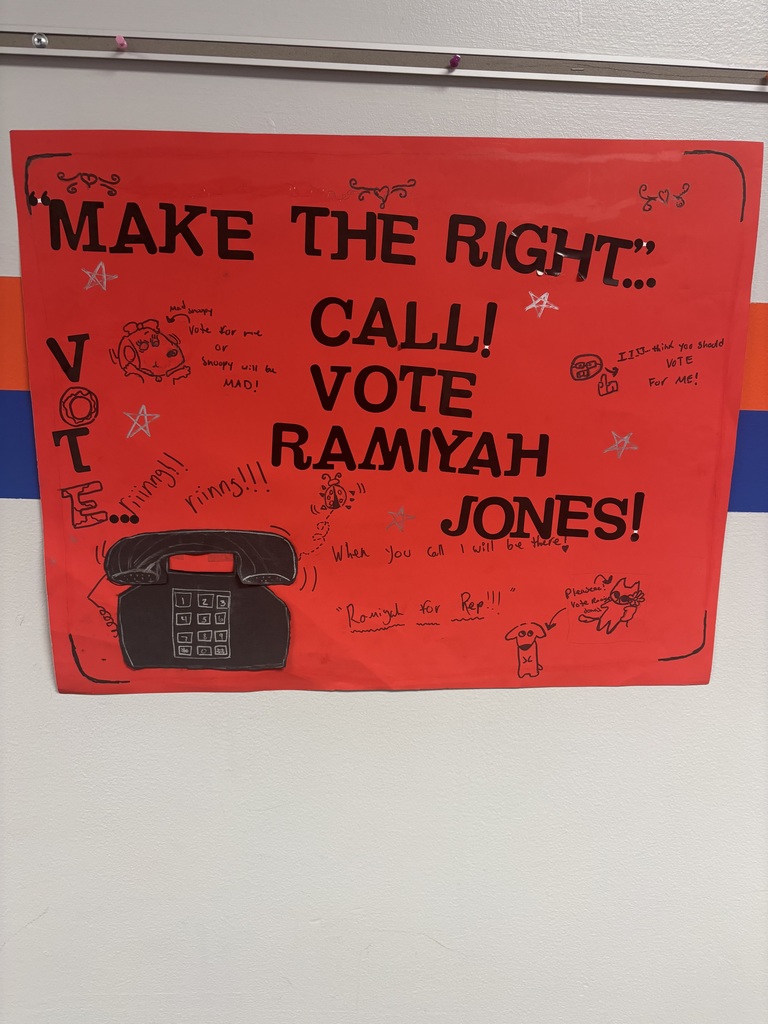 "MAKE THE RIGHT"...
CALL!
VOTE
RAMIYAH
JONES!
VOTE...
mad snoopy
Vote for me
or
Snoopy will be
MAD!
I I I think you should
VOTE
FOR ME!
riiinng!!
riinng!!!
When you call I will be there!
"Ramiyah for Rep!!!"
Vote
1 2 3
4 5 6
7 8 9